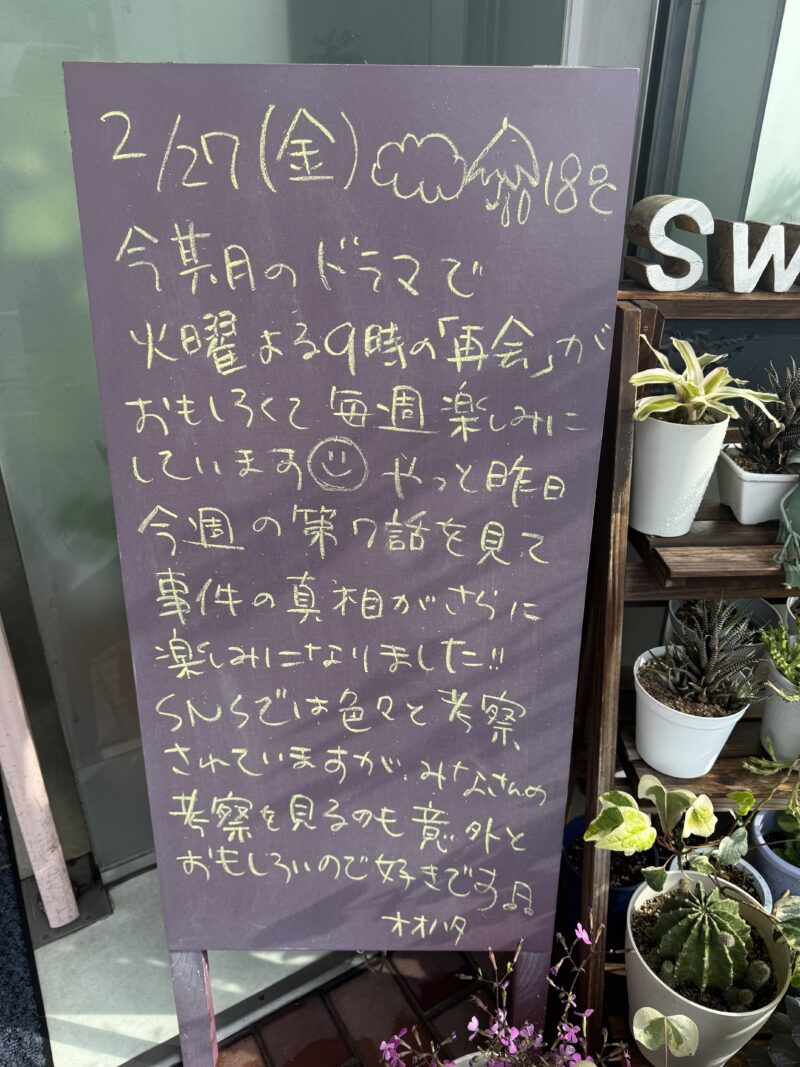 2/27(金) 18℃
今期のドラマで
火曜よる9時の「再会」が
おもしろくて毎週楽しみに
しています やっと昨日
今週の第7話を見て
事件の真相がさらに
楽しみになりました!!
SNSでは色々と考察
されていますが、みなさんの
考察を見るのも意外と
おもしろいので好きです♫
オオハタ
Sw